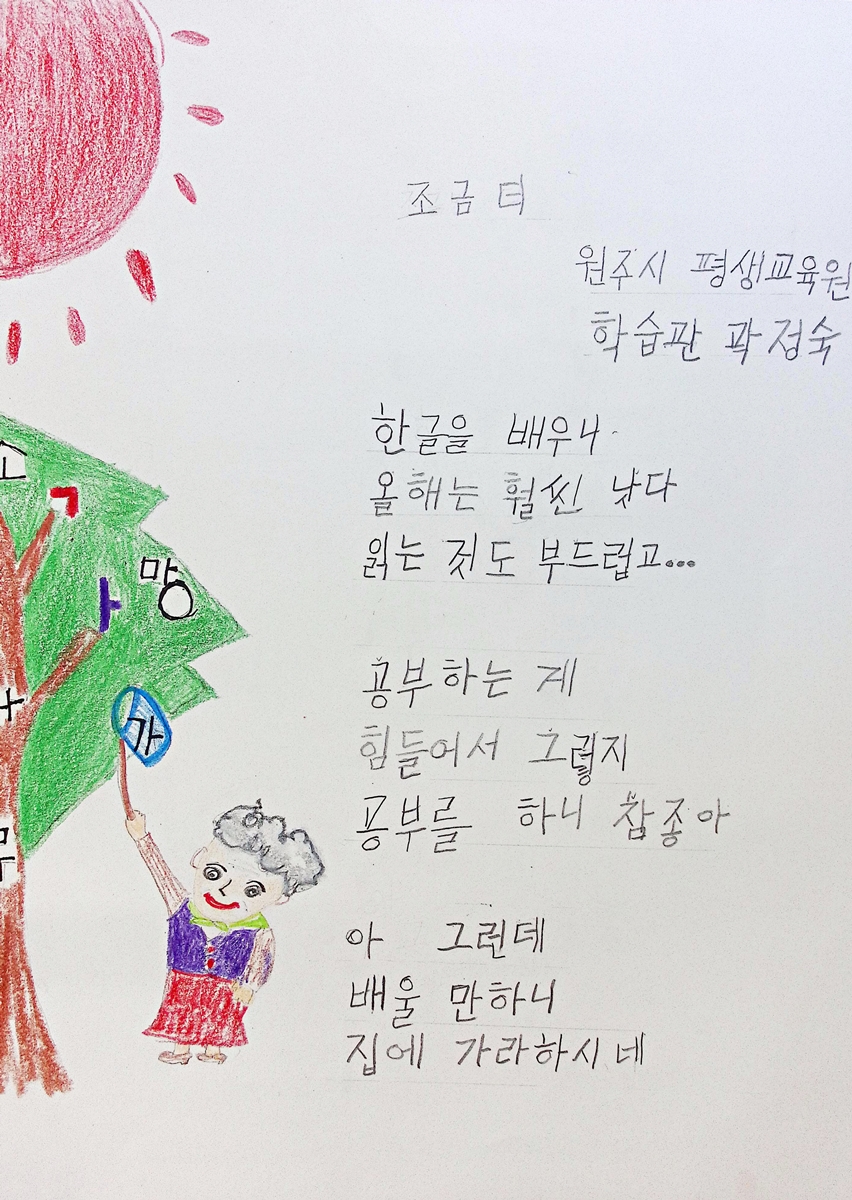 조금 더
원주시 평생교육원
학습관 곽정숙
한글을 배우니
올해는 훨씬 낫다
읽는 것도 부드럽고...
공부하는 게
힘들어서 그렇지
공부를 하니 참좋아
아 그런데
배울 만하니
집에 가라하시네
소
ㄱ
망
ㅏ
가